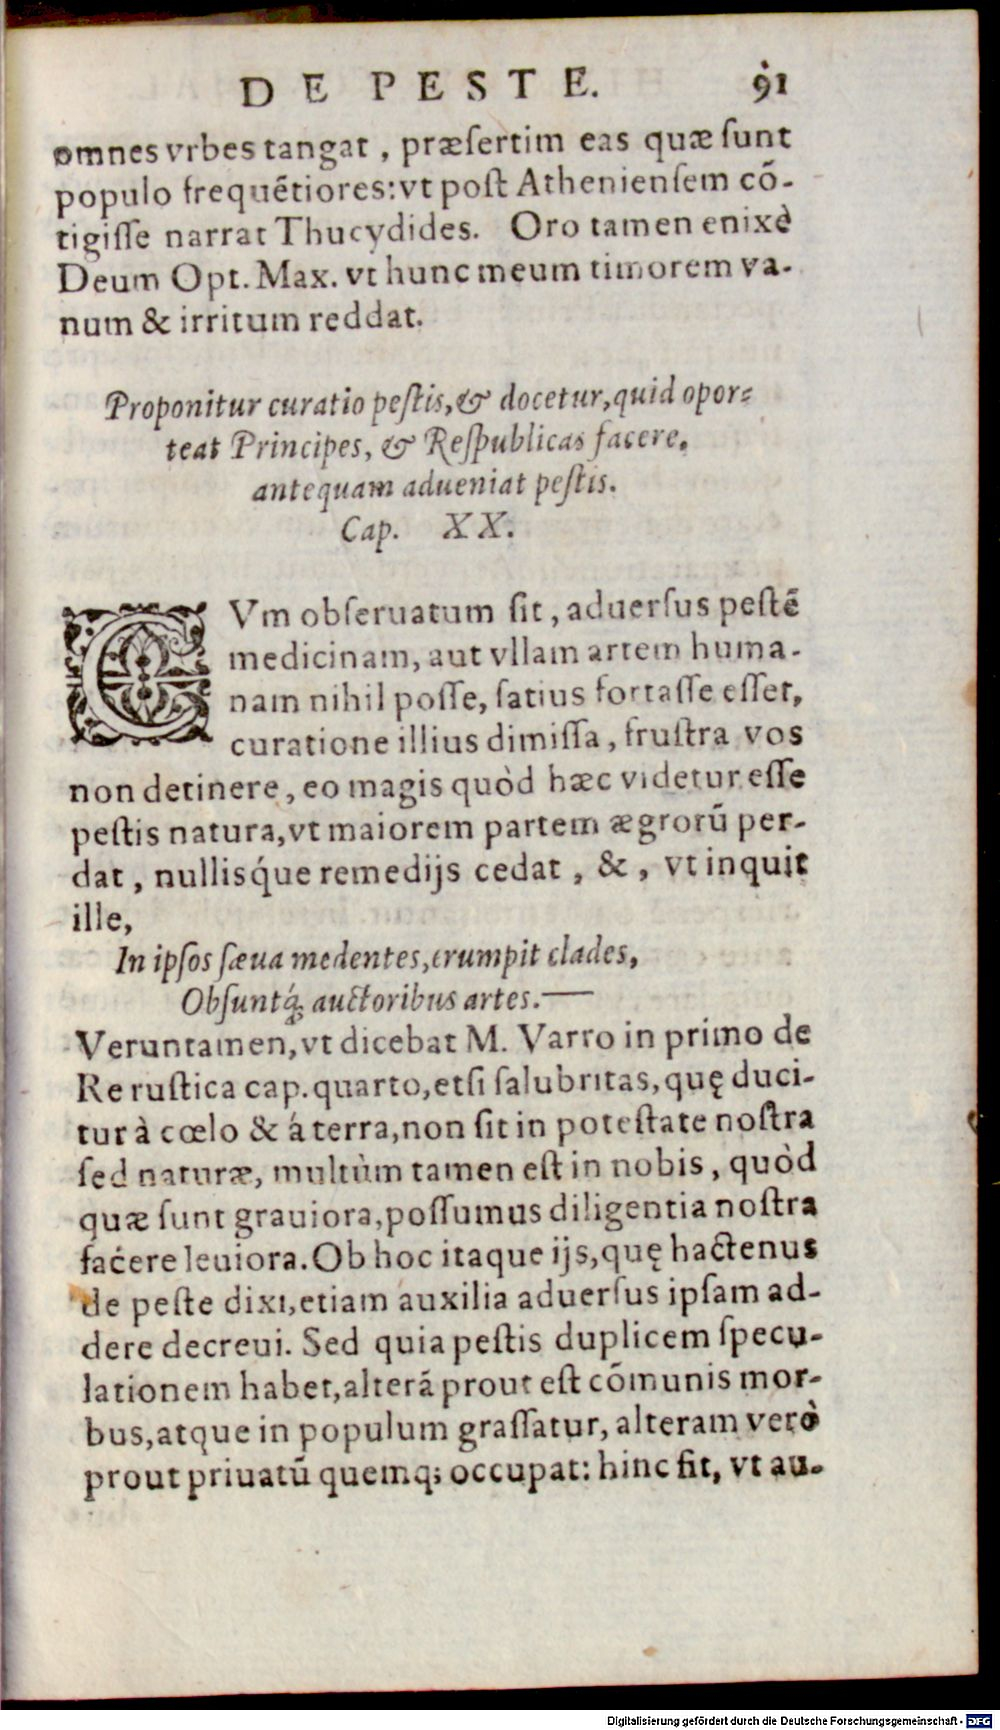 DE PESTE. 91
omnes vrbes tangat, præsertim eas quæ sunt
populo frequẽtiores: vt post Atheniensem cõ-
tigisse narrat Thucydides. Oro tamen enixè
Deum Opt. Max. vt hunc meum timorem va-
num & irritum reddat.
Proponitur curatio pestis, & docetur, quid opor-
teat Principes, & Respublicas facere,
antequam adueniat pestis.
Cap. XX.
CVm obseruatum sit, aduersus pestẽ
medicinam, aut vllam artem huma-
nam nihil posse, satius fortasse esset,
curatione illius dimissa, frustra vos
non detinere, eo magis quòd hæc videtur esse
pestis natura, vt maiorem partem ægrorũ per-
dat, nullisq́ue remedijs cedat, &, vt inquit
ille,
In ipsos sæua medentes, erumpit clades,
Obsuntq́; auctoribus artes.—
Veruntamen, vt dicebat M. Varro in primo de
Re rustica cap. quarto, etsi salubritas, quę duci-
tur à cœlo & á terra, non sit in potestate nostra
sed naturæ, multùm tamen est in nobis, quòd
quæ sunt grauiora, possumus diligentia nostra
facere leuiora. Ob hoc itaque ijs, quę hactenus
de peste dixi, etiam auxilia aduersus ipsam ad-
dere decreui. Sed quia pestis duplicem specu-
lationem habet, alterã prout est cõmunis mor-
bus, atque in populum grassatur, alteram verò
prout priuatũ quemq; occupat: hinc fit, vt au-
Digitalisierung gefördert durch die Deutsche Forschungsgemeinschaft - DFG